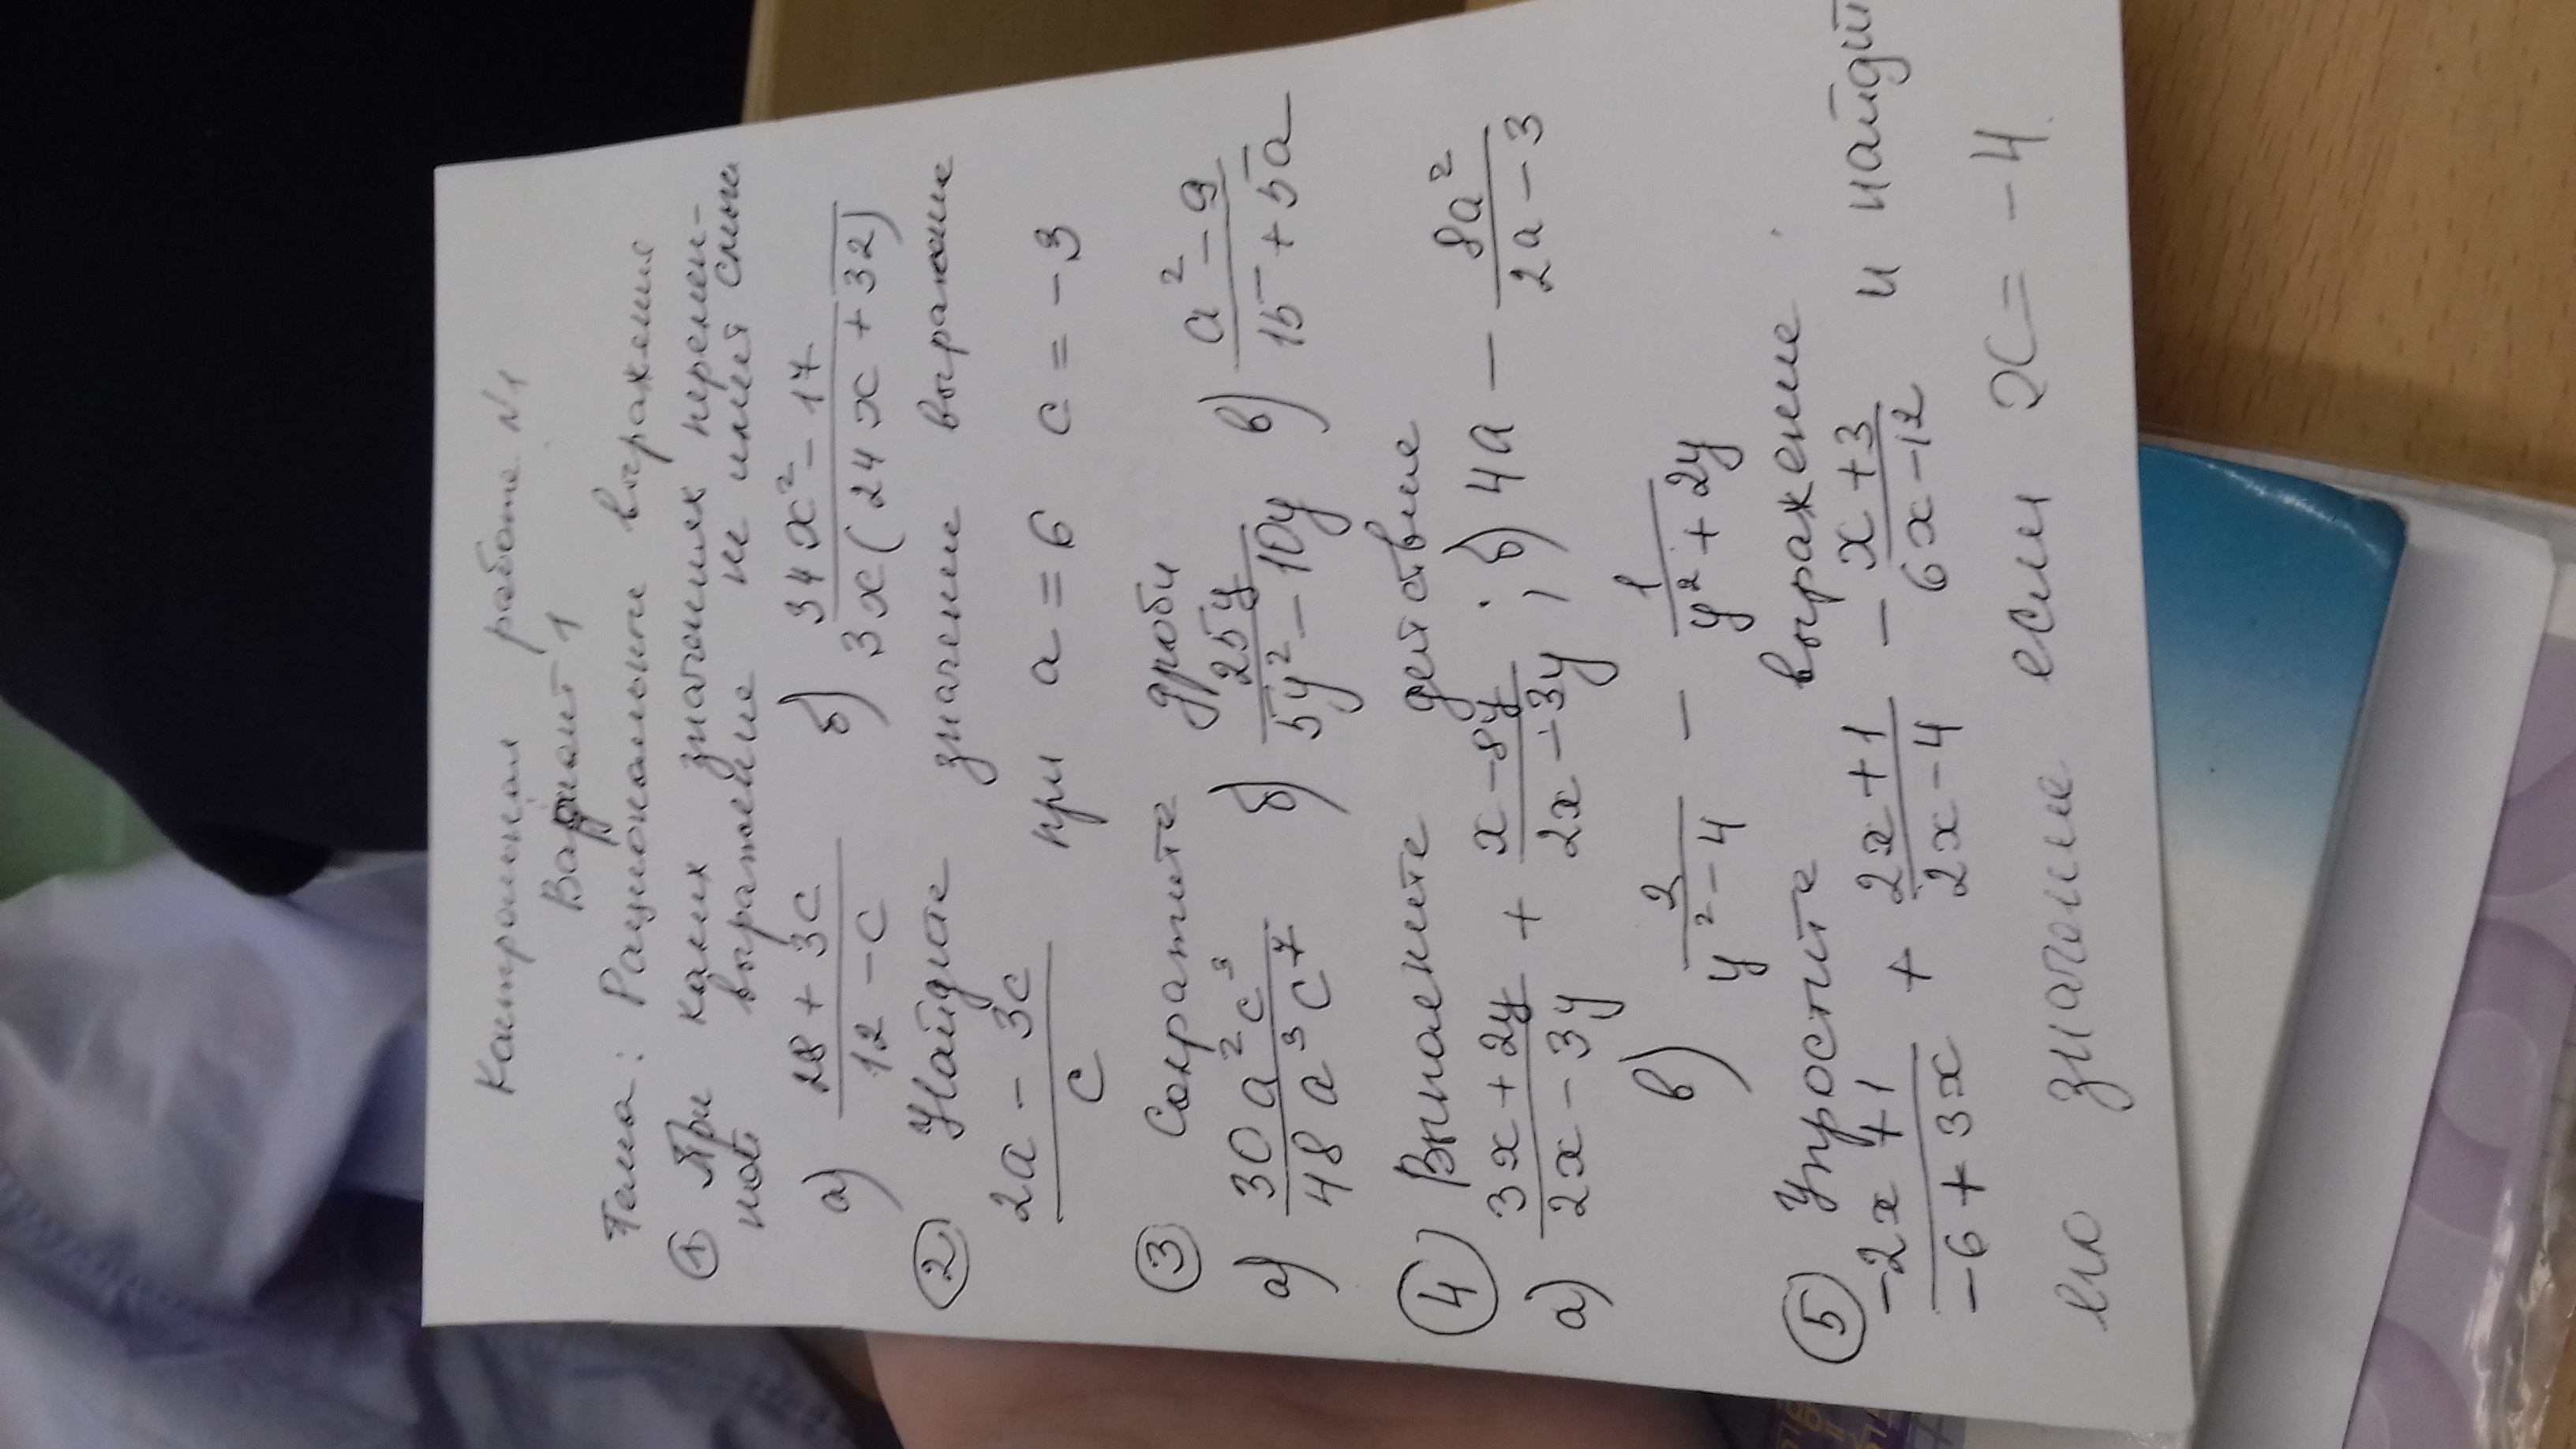 Контрольная работа №1
Вариант 1
Тема: Рациональные выражения
① При каких значениях перемен-
ной выражение не имеет смысл
а) (28 + 3c)/(12 - c) б) (34x² - 17)/(3x(24x + 32))
② Найдите значение выражение
(2a - 3c)/c при a = 6 c = -3
③ Сократите дроби
а) (30a²c³)/(48a³c⁷) б) (25y)/(5y² - 10y) в) (a² - 9)/(15 + 5a)
④ Выполните действие
а) (3x + 2y)/(2x - 3y) + (x - 8y)/(2x - 3y); б) 4a - (8a²)/(2a - 3)
в) 2/(y² - 4) - 1/(y² + 2y)
⑤ Упростите выражение
(-2x + 1)/(-6 + 3x) + (2x + 1)/(2x - 4) - (x + 3)/(6x - 12) и найди
его значение если x = -4.